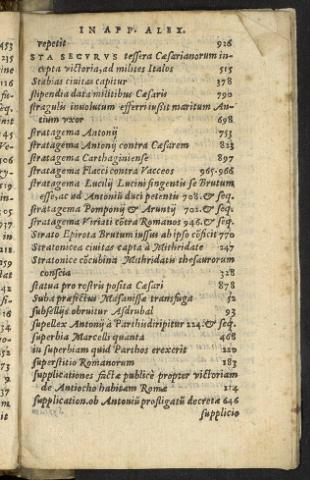 IN APP. ALEX.
repetit 926
STA SECVRVS tessera Cæsarianorum in-
cepta victoria, ad milites Italos 515
Stabias ciuitas capitur 378
stipendia data militibus Cæsaris 790
stragulis inuolutum efferri iussit maritum An-
tium vxor 698
stratagema Antonij 753
stratagema Antonij contra Cæsarem 823
stratagema Carthaginiense 897
stratagema Flacci contra Vacceos 965.966
stratagema Lucilij Lucini fingentis se Brutum
esse, ac ad Antoniũ duci petentis 708.& seq.
stratagema Pomponij & Aruntij 702.& seq.
stratagema Viriati cõtra Romanos 946.& seq.
Strato Epirota Brutum iussus ab ipso cõficit 770
Stratonicea ciuitas capta à Mithridate 247
Stratonice cõcubina Mithridatis thesaurorum
conscia 328
statua pro rostris posita Cæsari 878
Suba præfectus Masanissæ transfuga 52
subsellijs obruitur Asdrubal 93
supellex Antonij à Parthis diripitur 224.& seq.
superbia Marcelli quanta 468
in superbiam quid Parthos erexerit 220
superstitio Romanorum 183
supplicationes factæ publicè propter victoriam
de Antiocho habitam Romæ 174
supplication.ob Antoniũ profligatũ decretæ 646
supplicio